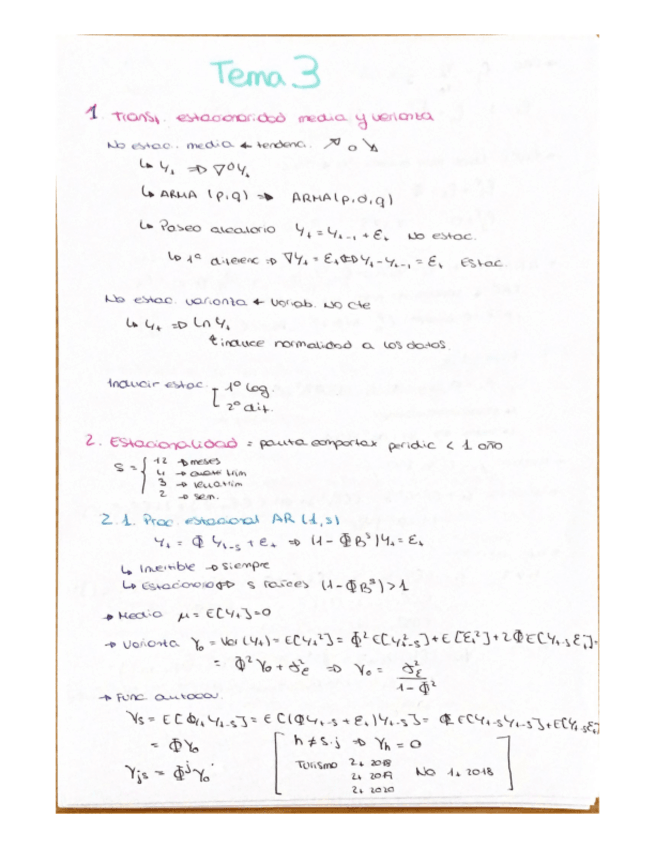 Tema 3
1 Transf. estacionaridad media y varianza
No estac. media ← tendenc. ↗ o ↘
↳ Yt ⇒ ∇ᵈYt
↳ ARMA (p,q) ⇒ ARMA(p,d,q)
↳ Paseo aleatorio Yt = Yt-1 + Et No estac.
↳ 1ª diferenc ⇒ ∇Yt = Et ⇔ Yt - Yt-1 = Et Estac.
No estac. varianza ← variab. No cte
↳ Yt ⇒ Ln Yt
induce normalidad a los datos.
Inducir estac. [ 1º Log.
2º dif.
2. Estacionalidad = pauta comportax periodic < 1 año
S = { 12 → meses
4 → cuatrim
3 →
2 → sem.
2.1. Proc. estacional AR (1,s)
Yt = Φ Yt-s + Et ⇒ (1 - ΦBˢ)Yt = Et
↳ Invertible → siempre
↳ Estacionario ⇔ s raíces (1 - ΦBˢ) > 1
→ Media μ = E[Yt] = 0
→ Varianza γ₀ = Var (Yt) = E[Yt²] = Φ² E[Y²t-s] + E[Et²] + 2ΦE[Yt-s Et] =
= Φ² γ₀ + σ²ε ⇒ γ₀ = σ²ε / 1 - Φ²
→ Func autocov.
γs = E[Yt Yt-s] = E[(ΦYt-s + Et)Yt-s] = ΦE[Yt-s Yt-s] + E[Yt-s Et]
= Φγ₀ [ h ≠ s·j ⇒ γh = 0 ]
γjs = Φʲγ₀ Turismo 2t 2018
2t 2019 No 1t 2018
2t 2020